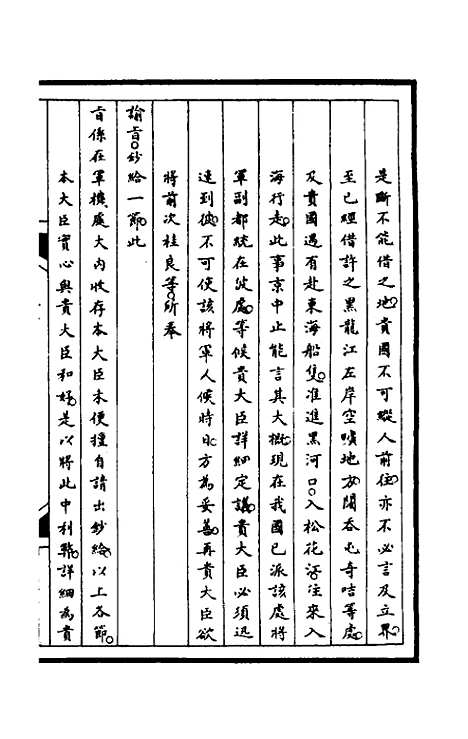 是斷不能借之地。貴國不可縱人前往。亦不必言及立界。
至已經借許之黑龍江左岸空曠地方。闊吞屯奇咭等處。
及貴國遇有赴東海船隻。准進黑河口。入松花江往來入
海行走。此事京中止能言其大概。現在我國已派該處將
軍副都統在彼處。等候貴大臣詳細定議。貴大臣必須迅
速到彼。不可使該將軍人候時日。方為妥善。再貴大臣欲
將前次桂良等。所奉
諭旨。鈔給一節。此
旨係在軍機處大內收存本大臣未便擅自請出鈔給。以上各節。
本大臣實心與貴大臣和好。是以將此中利弊。詳細為貴